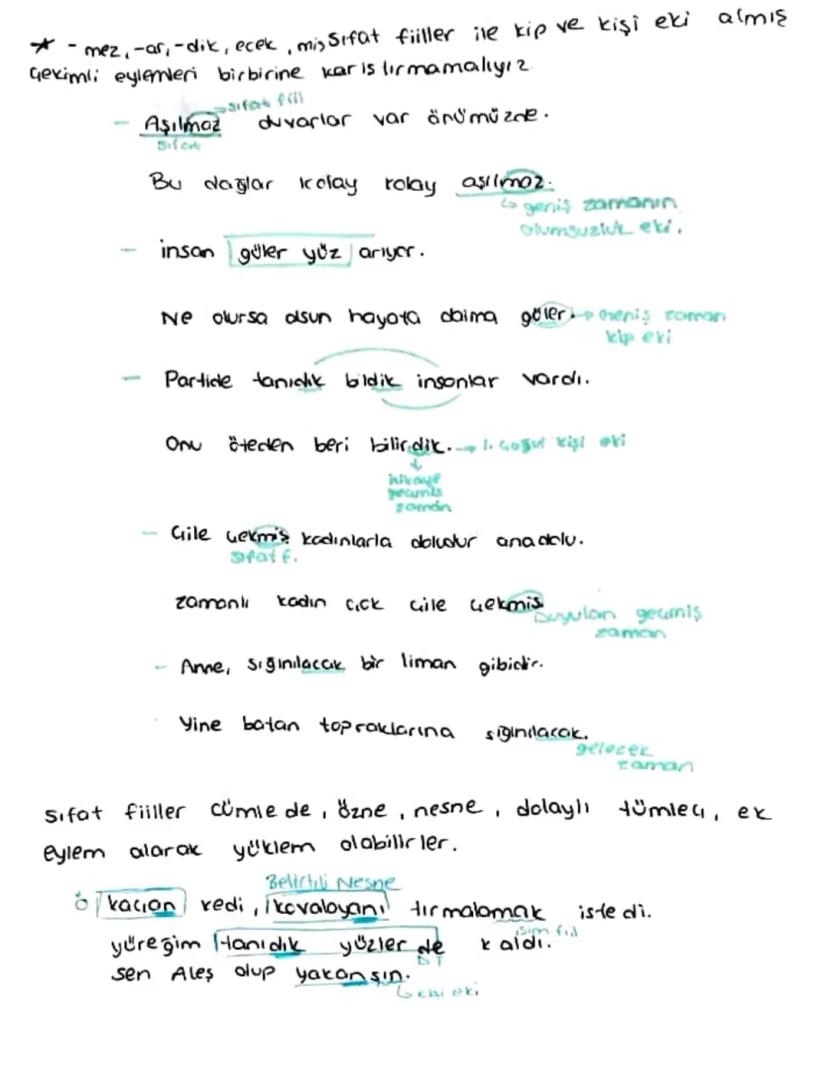 * - mez, -ar, -dik, ecek, miş Sıfat fiiller ile kip ve kişi eki almış
Çekimli eylemleri birbirine karıstırmamalıyız
→ sıfat fiil
- Aşılmaz duvarlar var önümüzde.
Sıfat
Bu dağlar kolay kolay aşılmaz.
↳ geniş zamanın
olumsuzluk eki.
- insan güler yüz arıyor.
Ne olursa olsun hayata daima güler. → Geniş zaman
kip eki
- Partide tanıdık bildik insanlar vardı.
Onu öteden beri bilirdik. → 1. çoğul kişi eki
hikaye
geçmiş
zaman
- Çile çekmiş kadınlarla doludur anadolu.
sıfat f.
zamanlı kadın çok çile çekmiş
Duyulan geçmiş
zaman
- Anne, sığınılacak bir liman gibidir.
Yine batan topraklarına sığınılacak.
gelecek
zaman
sıfat fiiller cümlede, özne, nesne, dolaylı tümleç, ek
eylem alarak yüklem olabilirler.
Belirtili Nesne
ö kaçan kedi, kovalayanı tırmalamak istedi.
isim fiil
yüreğim tanıdık yüzler de kaldı.
DT
sen Ateş olup yakansın.
↳ kişi eki